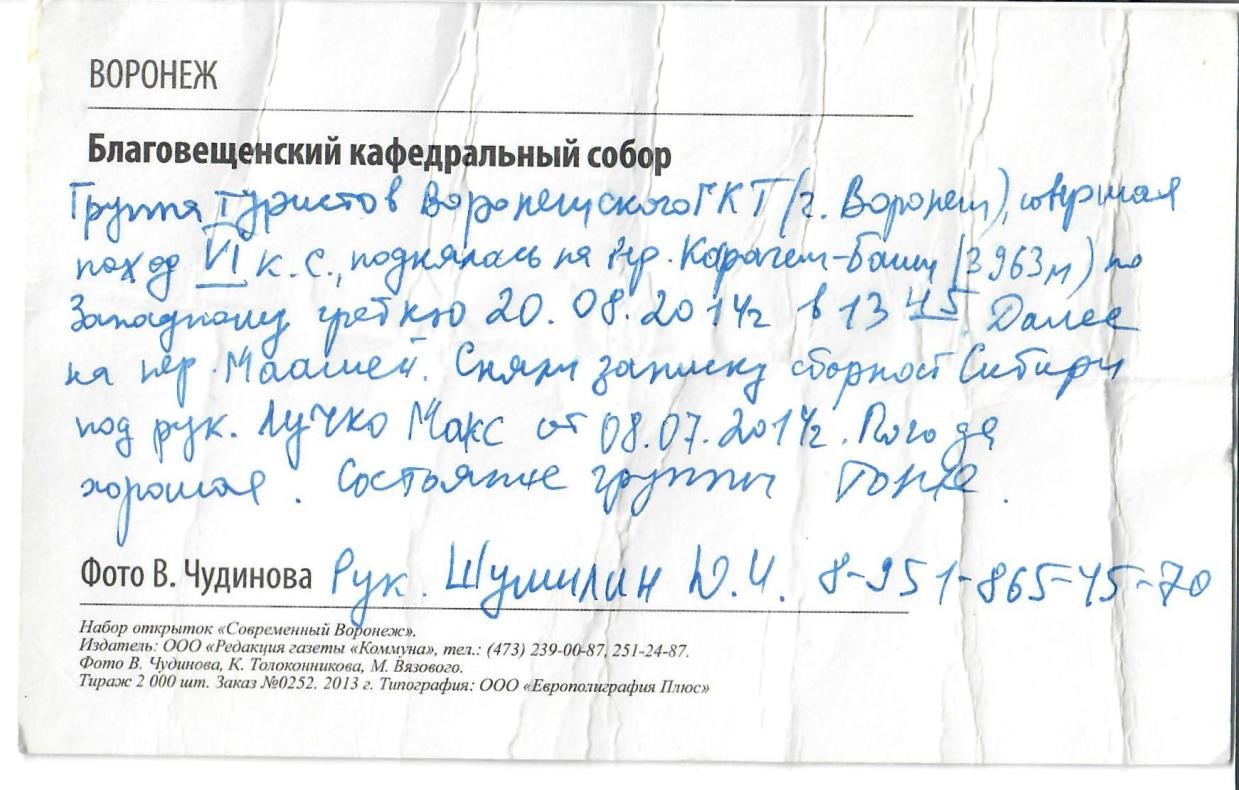 ВОРОНЕЖ
Благовещенский кафедральный собор
Группа туристов Воронежского ГКТ (г. Воронеж), совершая
поход VI к.с., поднялась на пер. Карагем-Баши (3963м) по
Западному гребню 20.08.2014г в 13 45. Далее
на пер. Маашей. Сняли записку сборной Сибири
под рук. Лучко Макс от 08.07.2014г. Погода
хорошая. Состояние группы тоже.
Фото В. Чудинова Рук. Шумилин Ю.И. 8-951-865-45-70
Набор открыток «Современный Воронеж».
Издатель: ООО «Редакция газеты «Коммуна», тел.: (473) 239-00-87, 251-24-87.
Фото В. Чудинова, К. Толоконникова, М. Вязового.
Тираж 2 000 шт. Заказ №0252. 2013 г. Типография: ООО «Европолиграфия Плюс»